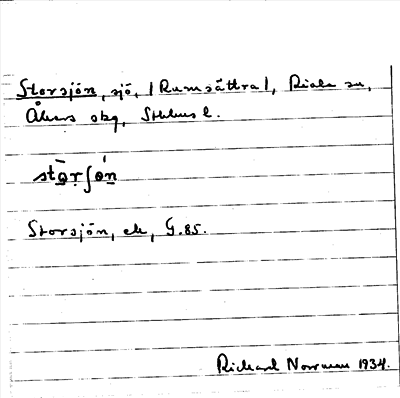 Storsjön, sjö, (Rumsättra), Riala sn,
Åkers skg, Sthlms l.
stɷ̀rʃɵ́n
Storsjön, ek, G.85.
Richard Norrman 1934.